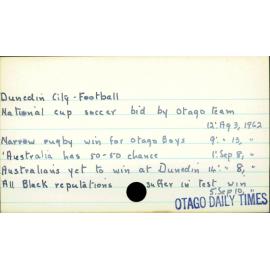 Dunedin City - Football
National cup soccer bid by Otago team
12' Ag 3, 1962
Narrow rugby win for Otago Boys 9' " 13, "
'Australia has 50-50 chance 1' Sep 8, "
Australians yet to win at Dunedin 14' " 8, "
All Black reputations suffer in test win
5' Sep 10, "
OTAGO DAILY TIMES